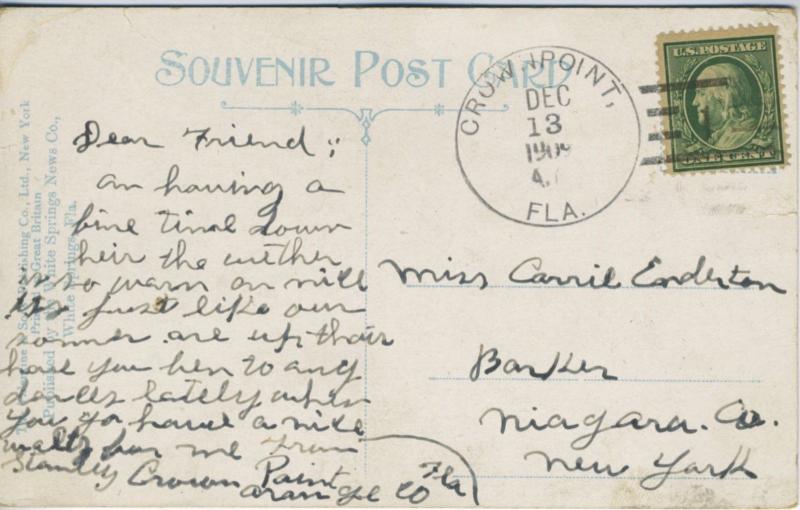 SOUVENIR POST CARD
CROWN POINT,
DEC
13
1909
FLA.
U.S. POSTAGE
ONE CENT
Publishing Co., Ltd., New York
Printed in Great Britain
Published by White Springs News Co.,
White Springs, Fla.
Dear Friend;
an having a
fine time down
heir the wether
is so warm an nice
its just like our
sommer are up thair
have you ben to any
dances lately when
you go have a nice
waltz for me From
Stanley Crown Point
orange co Fla
Miss Carril Enderton
Barker
Niagara. Co.
New York